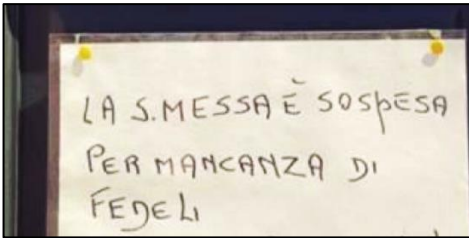 LA S.MESSA È SOSPESA
PER MANCANZA DI
FEDELI